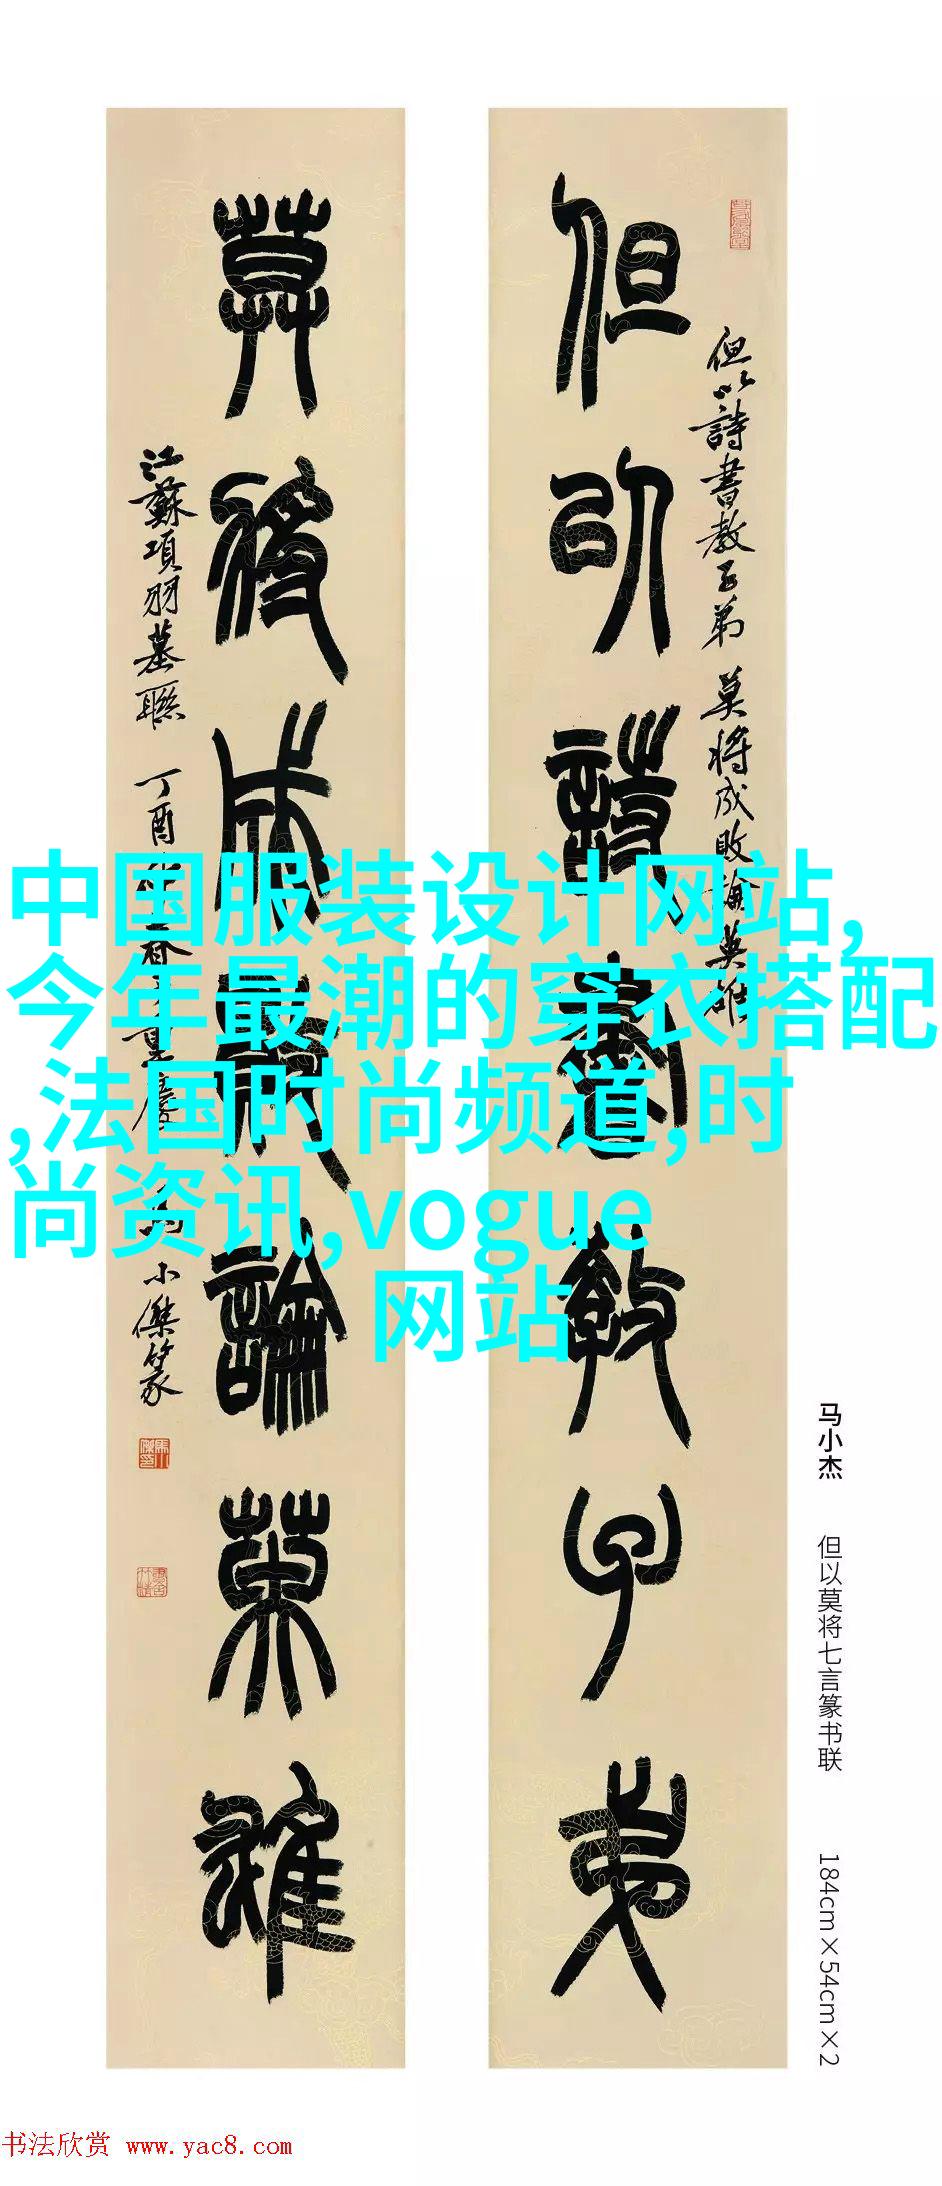 但以詩書教子弟
但以詩書教子弟 莫將成敗論英雄
莫將成敗論英雄
江蘇項羽墓聯 丁酉
重慶
馬小傑篆
中国服装设计网站,
今年最潮的穿衣搭配
,法国时尚频道,时
尚资讯,vogue
网站
马小杰 但以莫将七言篆书联 184cm×54cm×2
书法欣赏 www.yac8.com